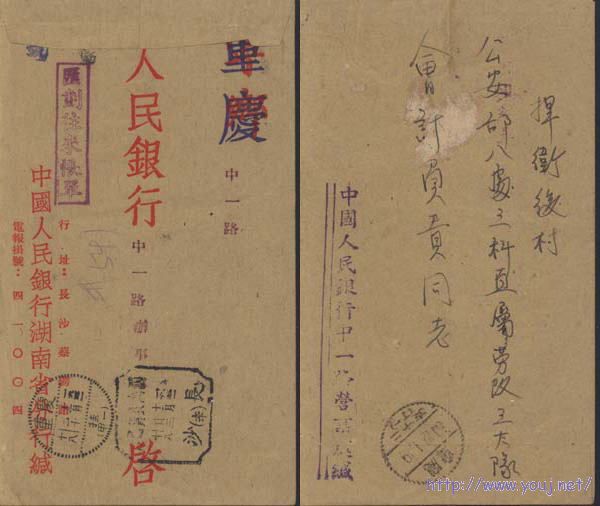 重慶
中一路
人民銀行
中一路辦事
啓
匯劃往來帳單
中國人民銀行湖南省
緘
行址：長沙蔡
電報掛號：四一〇〇四
重慶
長沙
捍衛後村
公安部八處三科直屬勞改三大隊
會計員責同志
中國人民銀行中一路營
緘
http://www.youj.net/